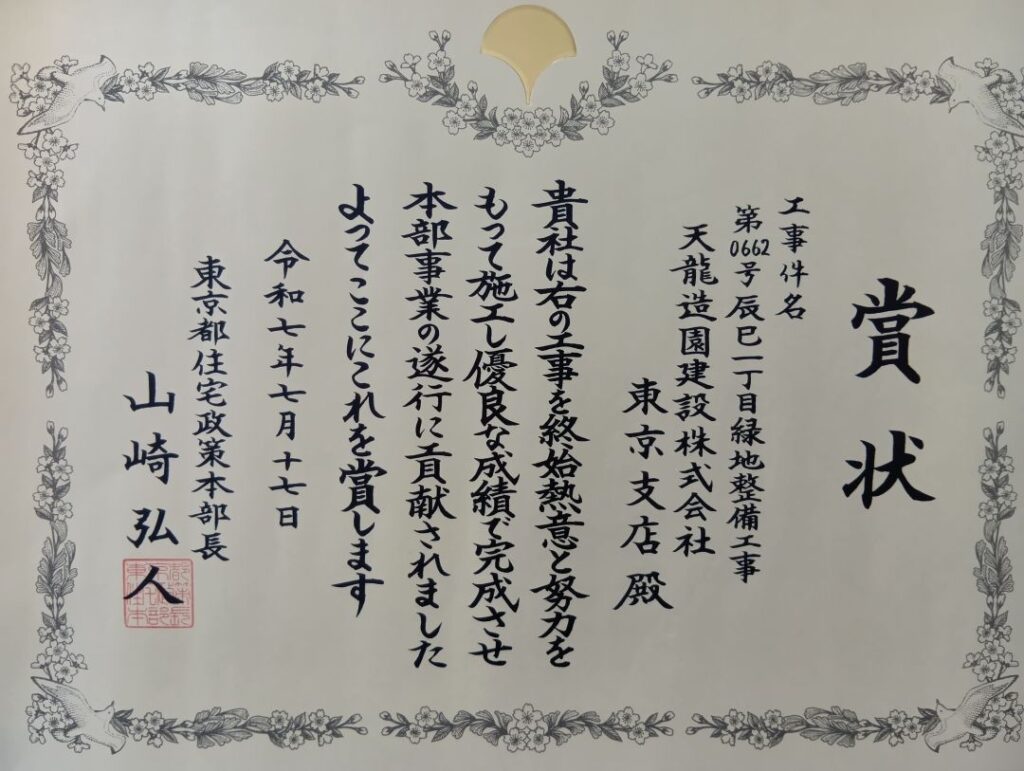 賞状
工事件名
第0662号辰巳一丁目緑地整備工事
天龍造園建設株式会社
東京支店 殿
貴社は右の工事を終始熱意と努力を
もって施工し優良な成績で完成させ
本部事業の遂行に貢献されました
よってここにこれを賞します
令和七年七月十七日
東京都住宅政策本部長
山崎弘人